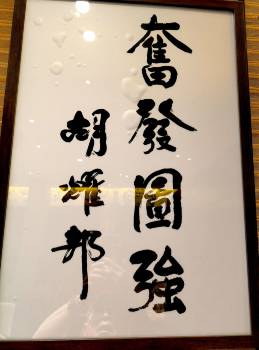 奮發圖強
胡耀邦